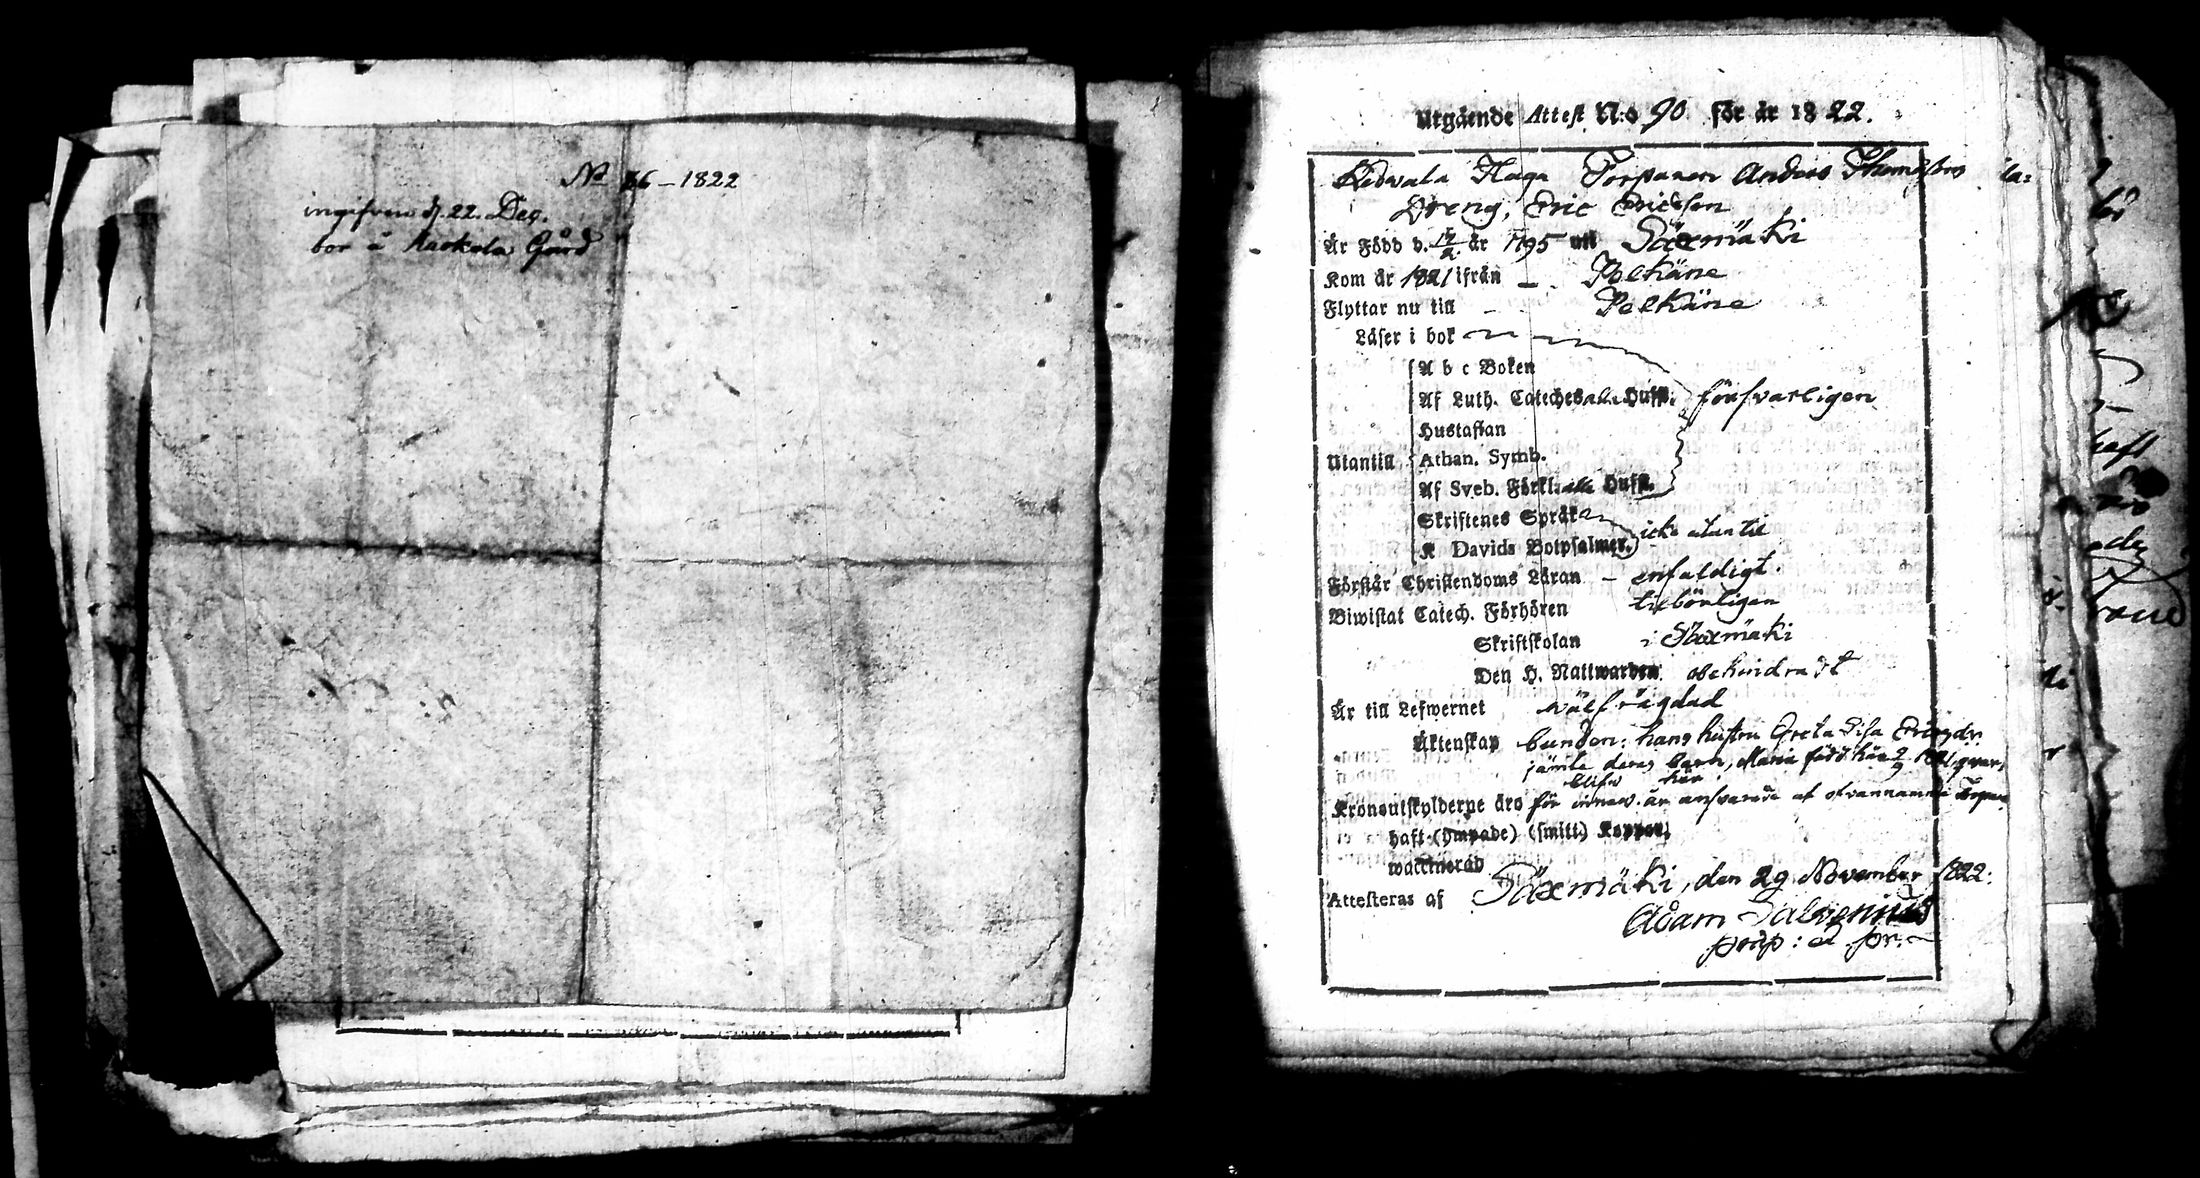 No 36 – 1822
ingifven d. 22. Dec.
bor å Kaokola Gård
Utgående Attest N:o 90 för år 1822.
Haga Torparen Anders
Dreng, Eric Ericsson
Är Född d. 17/2 år 1795 uti Säxmäki
Kom år 1821 ifrån — Pelkäne
Flyttar nu till — Pelkäne
Läser i bok
A b c Boken
Af Luth. Cateches alla Hufst. försvarligen
Hustaflan
Utantill Athan. Symb.
Af Sveb. Förkl. alla Hufst.
Skriftenes Språk
K Davids Botpsalmer. icke utantil
Förstår Christendoms Läran – enfaldigt.
Biwistat Catech. Förhören tilbörligen
Skriftskolan i Säxmäki
Den H. Nattwarden obehindradt
Är till Lefwernet wälfrägdad
Äktenskap bunden: hans hustru Greta Lisa
jämte deras barn, Maria född här 2/9 1821, qvar
blifw här
Kronoutskylderne äro för innew. år ansvarade af ofvannämnde
haft (ympade) (smitt.) Koppor,
waccinerad
Attesteras af Säxmäki, den 29 November 1822.
Adam Salvenius
præp: et p.